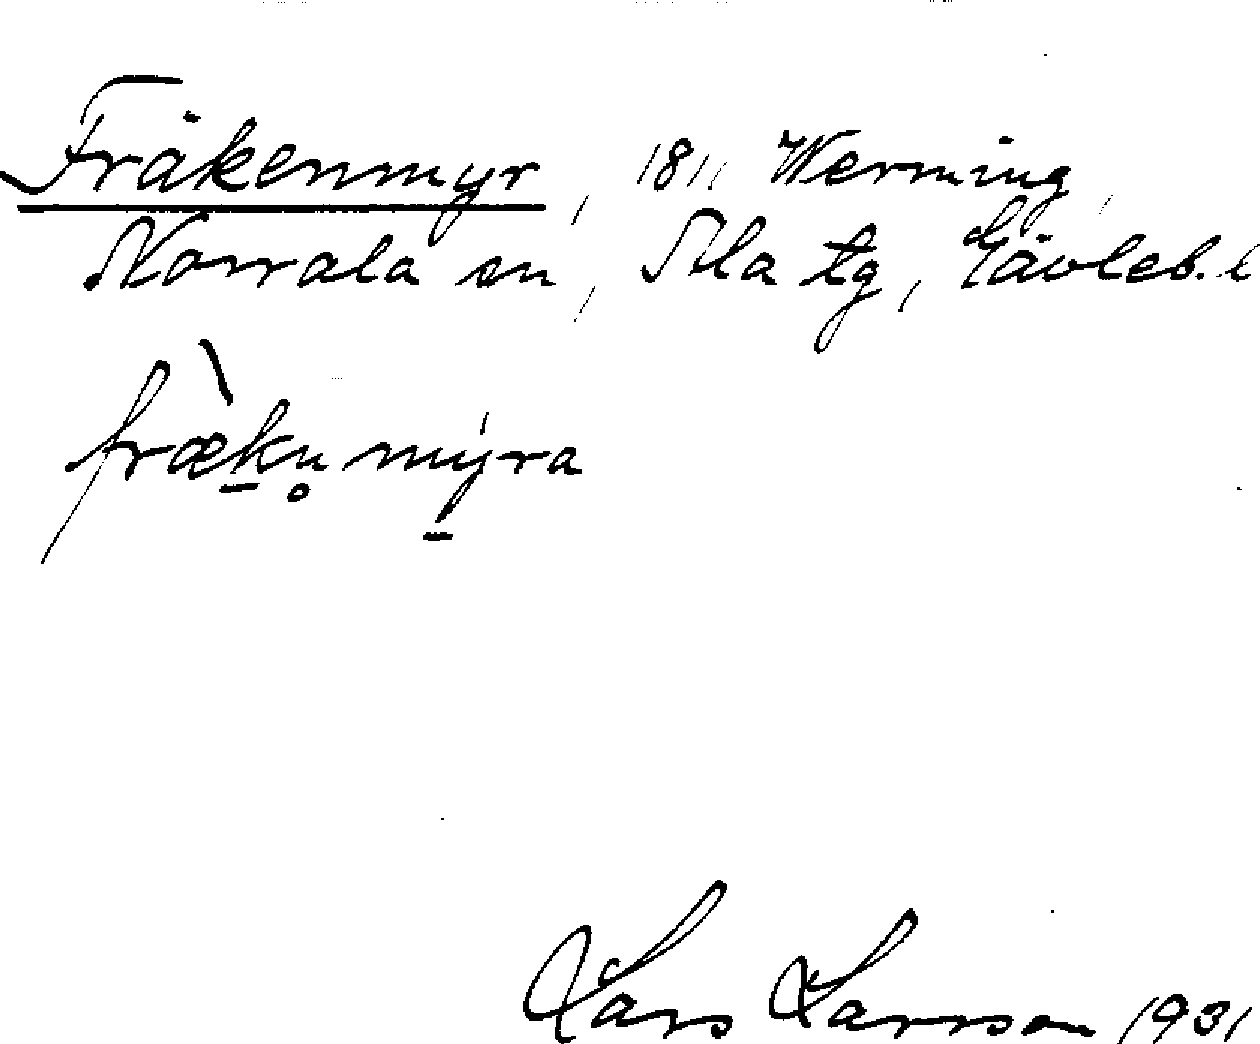 Fräkenmyr, 1811 Werming,
Norrala sn, Ala tg, Gävleb. l
fræ̀k̠n̥mýra
Lars Larsson 1931